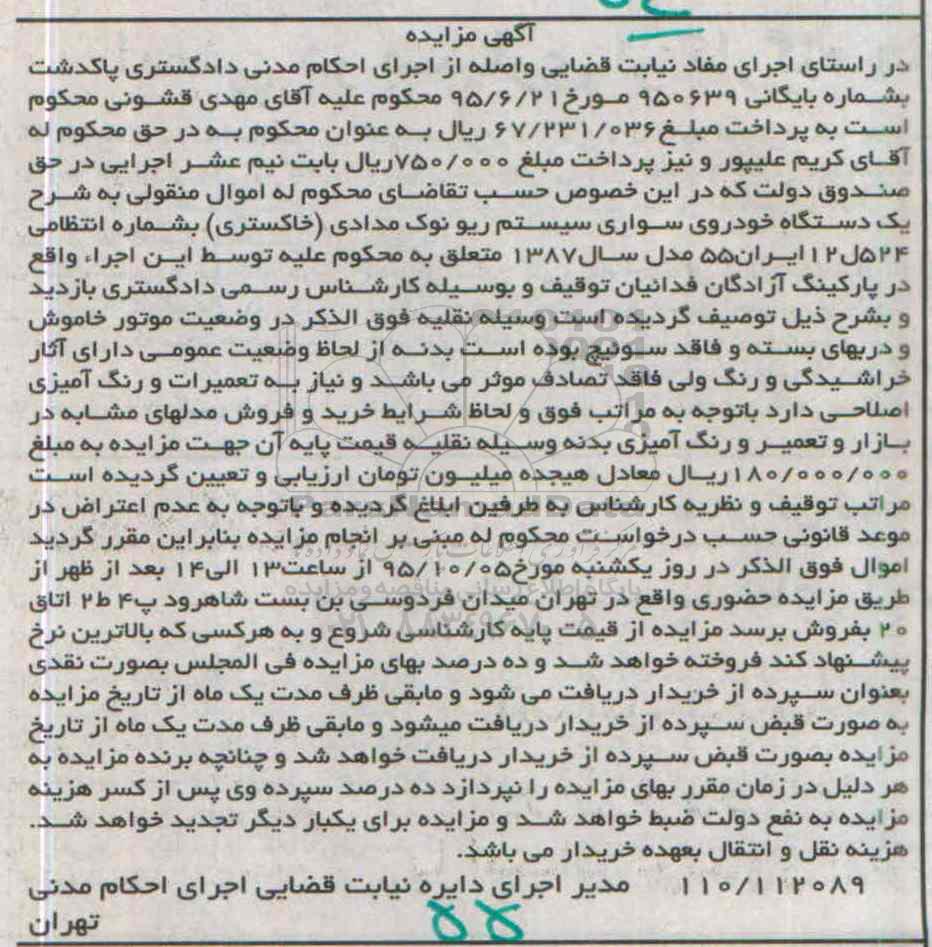 آگهی مزایده
در راستای اجرای مفاد نیابت قضایی واصله از اجرای احکام مدنی دادگستری پاکدشت
بشماره بایگانی ۹۵۰۶۳۹ مورخ ۹۵/۶/۲۱ محکوم علیه آقای مهدی قشونی محکوم
است به پرداخت مبلغ ۶۷/۲۳۱/۰۳۶ ریال به عنوان محکوم به در حق محکوم له
آقای کریم علیپور و نیز پرداخت مبلغ ۷۵۰/۰۰۰ریال بابت نیم عشر اجرایی در حق
صندوق دولت که در این خصوص حسب تقاضای محکوم له اموال منقولی به شرح
یک دستگاه خودروی سواری سیستم ریو نوک مدادی (خاکستری) بشماره انتظامی
۵۲۴ل۱۲ایران۵۵ مدل سال۱۳۸۷ متعلق به محکوم علیه توسط این اجراء واقع
در پارکینگ آزادگان فدائیان توقیف و بوسیله کارشناس رسمی دادگستری بازدید
و بشرح ذیل توصیف گردیده است وسیله نقلیه فوق الذکر در وضعیت موتور خاموش
و دربهای بسته و فاقد سوئیچ بوده است بدنه از لحاظ وضعیت عمومی دارای آثار
خراشیدگی و رنگ ولی فاقد تصادف موثر می باشد و نیاز به تعمیرات و رنگ آمیزی
اصلاحی دارد باتوجه به مراتب فوق و لحاظ شرایط خرید و فروش مدلهای مشابه در
بازار و تعمیر و رنگ آمیزی بدنه وسیله نقلیه قیمت پایه آن جهت مزایده به مبلغ
۱۸۰/۰۰۰/۰۰۰ریال معادل هیجده میلیون تومان ارزیابی و تعیین گردیده است
مراتب توقیف و نظریه کارشناس به طرفین ابلاغ گردیده و باتوجه به عدم اعتراض در
موعد قانونی حسب درخواست محکوم له مبنی بر انجام مزایده بنابراین مقرر گردید
اموال فوق الذکر در روز یکشنبه مورخ۹۵/۱۰/۰۵ از ساعت۱۳ الی۱۴ بعد از ظهر از
طریق مزایده حضوری واقع در تهران میدان فردوسی بن بست شاهرود پ۴ ط۲ اتاق
۲۰ بفروش برسد مزایده از قیمت پایه کارشناسی شروع و به هرکسی که بالاترین نرخ
پیشنهاد کند فروخته خواهد شد و ده درصد بهای مزایده فی المجلس بصورت نقدی
بعنوان سپرده از خریدار دریافت می شود و مابقی ظرف مدت یک ماه از تاریخ مزایده
به صورت قبض سپرده از خریدار دریافت میشود و مابقی ظرف مدت یک ماه از تاریخ
مزایده بصورت قبض سپرده از خریدار دریافت خواهد شد و چنانچه برنده مزایده به
هر دلیل در زمان مقرر بهای مزایده را نپردازد ده درصد سپرده وی پس از کسر هزینه
مزایده به نفع دولت ضبط خواهد شد و مزایده برای یکبار دیگر تجدید خواهد شد.
هزینه نقل و انتقال بعهده خریدار می باشد.
۱۱۰/۱۱۲۰۸۹ مدیر اجرای دایره نیابت قضایی اجرای احکام مدنی
تهران